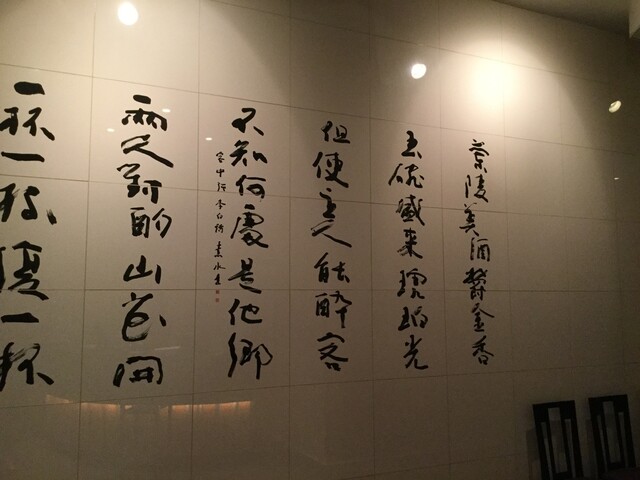 蘭陵美酒鬱金香
玉碗盛来琥珀光
但使主人能醉客
不知何處是他鄉
客中行 李白詩
兩人對酌山花開
一杯一杯復一杯